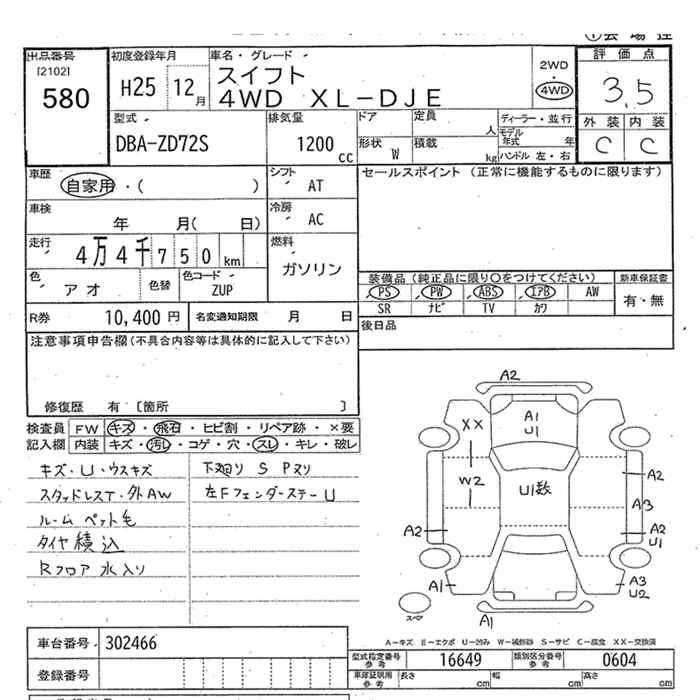 出品番号
[2102]
580
初度登録年月
H25 12月
車名・グレード
スイフト
4WD XL-DJE
2WD
4WD
評価点
3.5
外装 内装
C C
型式
DBA-ZD72S
排気量
1200 cc
ドア
定員 人
形状 W
積載 kg
ディーラー・並行
モデル年式 年
ハンドル 左・右
車歴
自家用・( )
シフト
AT
車検
年 月( 日)
冷房
AC
走行
4万4千750km
燃料
ガソリン
色
アオ
色替
色コード
ZUP
R券 10,400円
名変通知期限 月 日
セールスポイント (正常に機能するものに限ります)
装備品 (純正品に限り○をつけてください)
PS PW ABS エアB AW
SR ナビ TV カワ
新車保証書
有・無
後日品
注意事項申告欄(不具合内容等は具体的に記入して下さい)
修復歴 有 〔箇所 〕
検査員記入欄
FW キズ・飛石・ヒビ割・リペア跡・×要
内装 キズ・汚レ・コゲ・穴・スレ・キレ・破レ
キズ・U・ウスキズ
スタッドレスT・外AW
ルーム ペット毛
タイヤ積込
Rフロア 水入り
下廻り S Pヌリ
左Fフェンダーステー U
A2
A1
U1
XX
W2
U1数
A2
A3
A2
A2
U1
A1
A3
U2
スペア
A1
A-キズ E-エクボ U-凹み W-補修跡 S-サビ C-腐食 XX-交換済
車台番号 302466
登録番号
型式指定番号参考 16649
類別区分番号参考 0604
車庫証明用参考 長さ cm 幅 cm 高さ cm